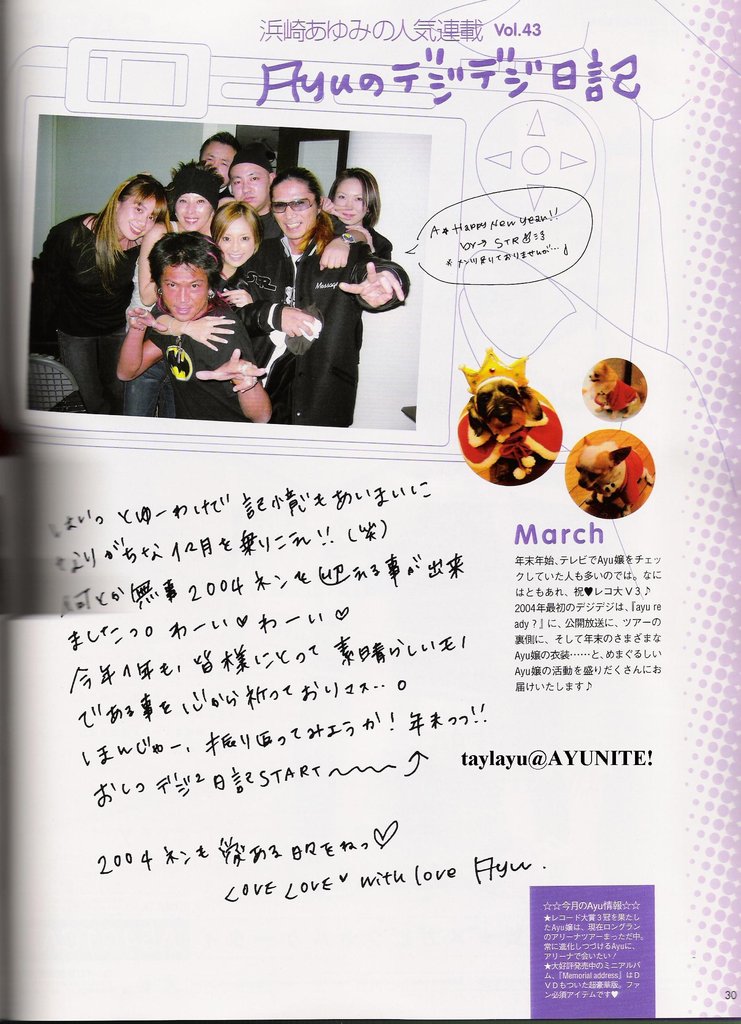 浜崎あゆみの人気連載 Vol.43
Ayuのデジデジ日記
A* Happy New Year!!
by→ STR
* メンツ足りておりませんが…♪
Message
はいっ とゆーわけで 記憶もあいまいに
なりがちな 12月を乗りこえ!! (笑)
何とか 無事 2004ネンを迎える事が出来
ましたっっ。 わーい♡ わーい♡
今年1年も、皆様にとって 素晴らしいモノ
である事を 心から祈っておりマス…。
じゃー、振り返ってみようか! 年末っっ!!
デジ2 日記 START
2004ネンも 愛ある 日々をねっ♡
LOVE LOVE♥ with love Ayu.
March
年末年始、テレビでAyu嬢をチェッ
クしていた人も多いのでは。なに
はともあれ、祝♥レコ大V3♪
2004年最初のデジデジは、『ayu re
ady?』に、公開放送に、ツアーの
裏側に、そして年末のさまざまな
Ayu嬢の衣装……と、めまぐるしい
Ayu嬢の活動を盛りだくさんにお
届けいたします♪
taylayu@AYUNITE!
☆☆今月のAyu情報☆☆
★レコード大賞3冠を果たし
たAyu嬢は、現在ロングラン
のアリーナツアーまっただ中。
常に進化しつづけるAyuに、
アリーナで会いたい!
★大好評発売中のミニアルバ
ム、『Memorial address』はD
VDもついた超豪華版。ファ
ン必須アイテムです♥
30